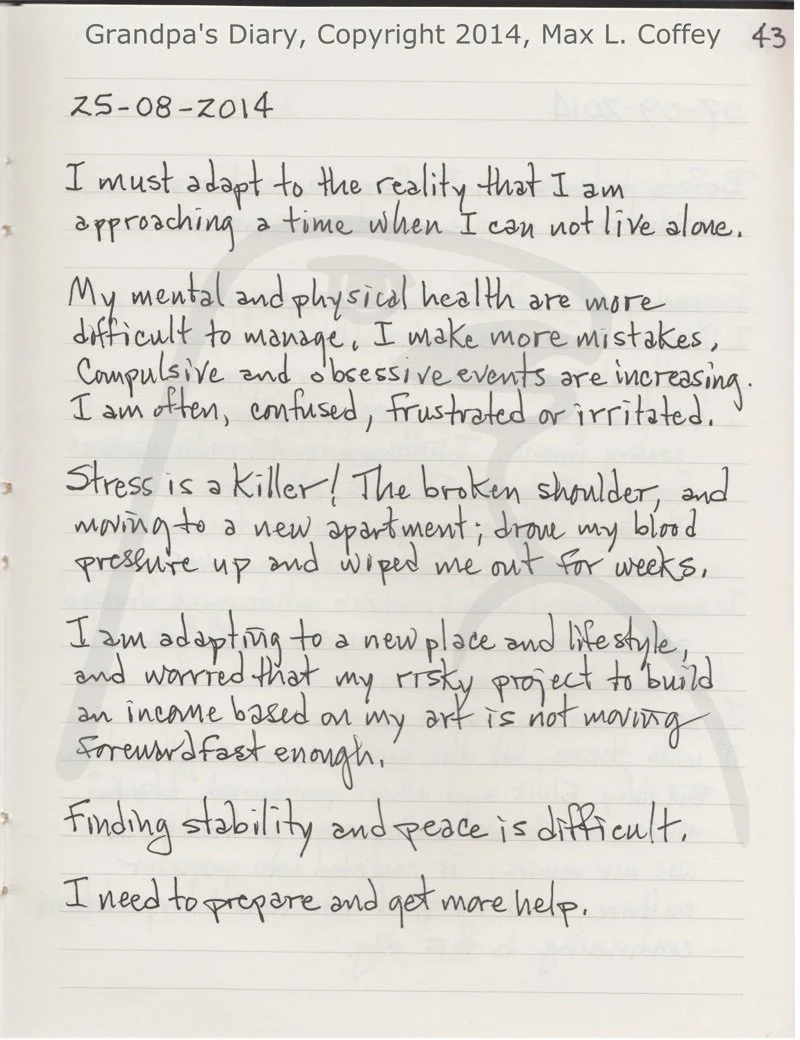 Grandpa's Diary, Copyright 2014, Max L. Coffey 43
25-08-2014
I must adapt to the reality that I am
approaching a time when I can not live alone.
My mental and physical health are more
difficult to manage. I make more mistakes,
Compulsive and obsessive events are increasing.
I am often, confused, frustrated or irritated.
Stress is a killer! The broken shoulder, and
moving to a new apartment; drove my blood
pressure up and wiped me out for weeks.
I am adapting to a new place and lifestyle,
and worried that my risky project to build
an income based on my art is not moving
foreward fast enough.
Finding stability and peace is difficult.
I need to prepare and get more help.